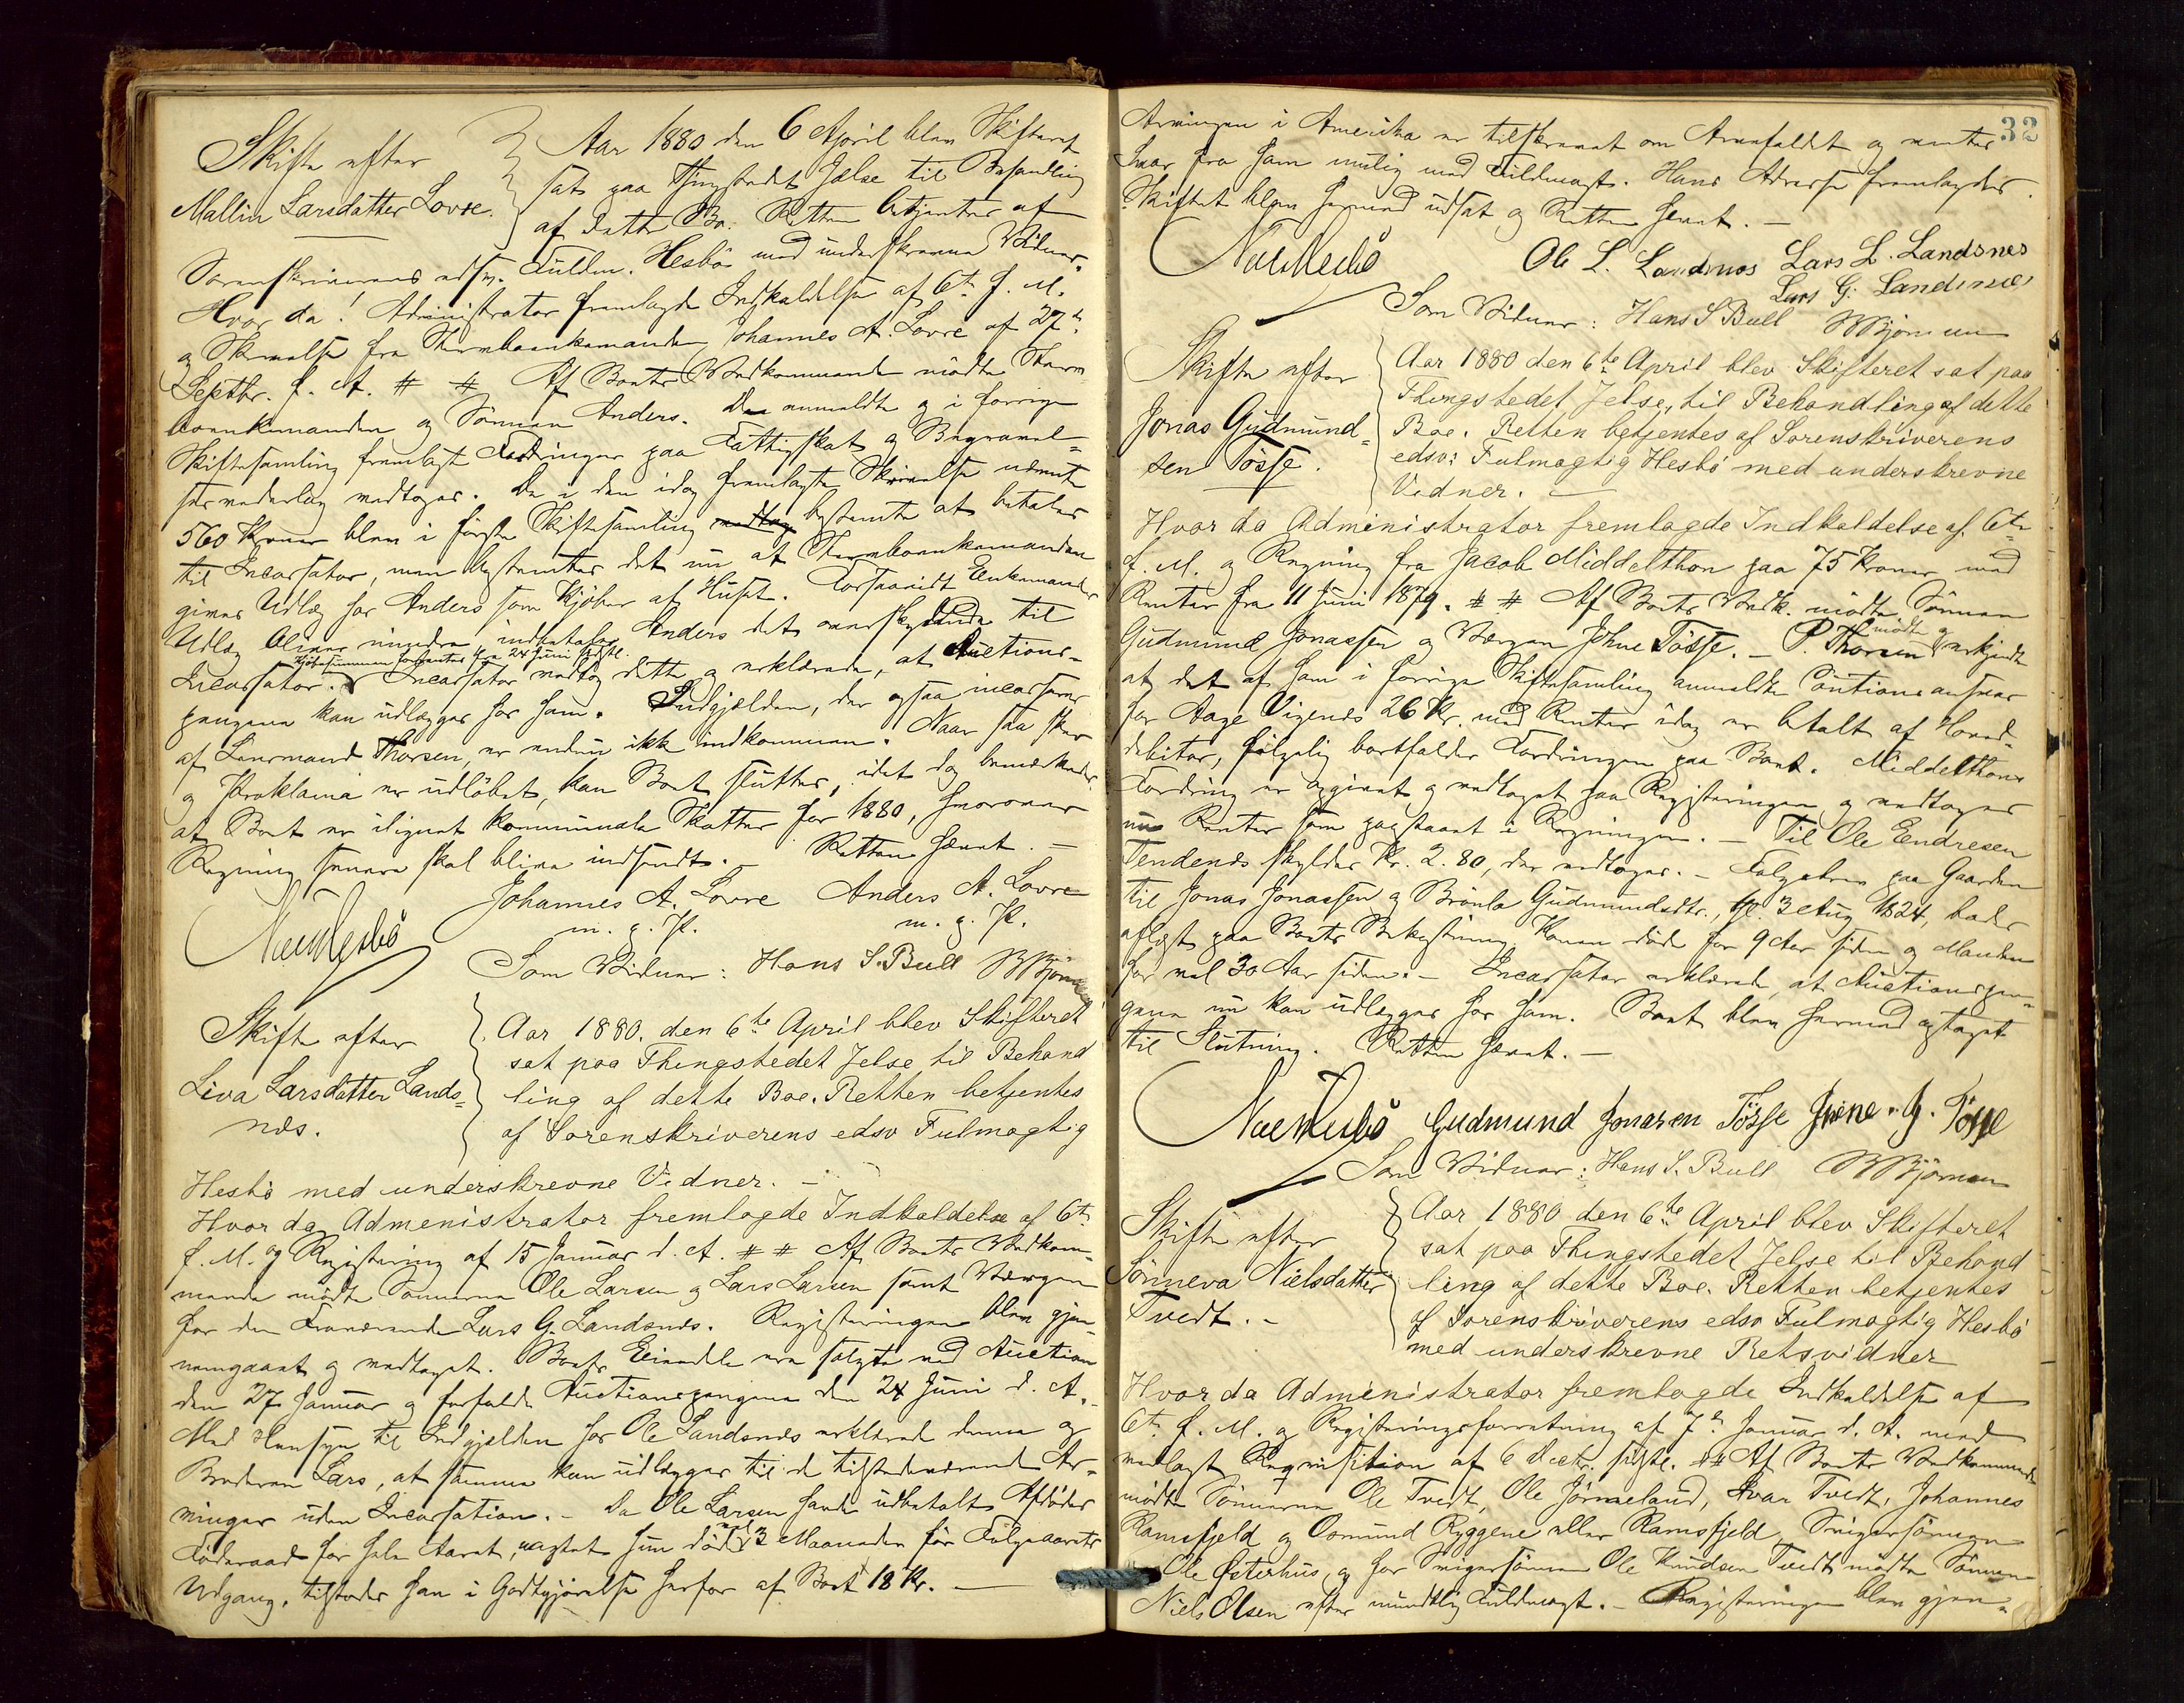 Skifte efter
Mallin Larsdatter Lovre.
Aar 1880 den 6 April blev Skifteret
sat paa Thingstedet Jelse til Behandling
af dette Bo. Retten betjentes af
Sorenskriverens edsv. Fuldm. Hesbö med underskrevne Vidner.
Hvor da! Administrator fremlagde Indkaldelse af 6te f. M.
og Skrivelse fra Stervboenkemanden Johannes A. Lovre af 27de
Septbr. f. A. # # Af Boets Vedkommende mödte Sterv-
boenkemanden og Sönnen Anders. De anmeldte og i forrige
Skiftesamling fremlagte Fordringer paa Fattigskat og Begravel-
sesvederlag vedtoges. De i den idag fremlagte Skrivelse nævnte
560 Kroner blev i förste Skiftesamling vedtag bestemte at betales
til Incassator, men bestemtes det nu at Stervboenkemanden
gives Udlæg hos Anders som Kjöber af Huset. Forsaavidt Enkemandens
Udlæg bliver mindre, indbetaler Anders det overskydende til
Kjöbesummen forrentes fra 24 Juni sidstl.
Incassator. Incassator vedtog dette og erklærede, at Auctions-
pengene kan udlægges hos ham. Indgjælden, der ogsaa incasseres
af Lensmand Thorsen, er endnu ikke indkommen. Naar saa sker
og Proklama er udlöbet, kan Boet sluttes, idet dog bemærkedes
at Boet er ilignet kommunale Skatter for 1880, hvorover
Regning senere skal blive indsendt. – Retten hævet. –
Johannes A. Lovre Anders A. Lovre
m. p. P. m. p. P.
Som Vidner: Hans S. Bull
Skifte efter
Liva Larsdatter Lands-
nes.
Aar 1880. den 6te April blev Skifteret
sat paa Thingstedet Jelse til Behand
ling af dette Boe. Retten betjentes
af Sorenskriverens edsv Fulmægtig
Hesbö med underskrevne Vidner. –
Hvor da Admenistrator fremlagde Indkaldelse af 6te
f. M. og Registering af 15 Januar d. A. # # Af Boets Vedkom-
mende mödte Sönnerne Ole Larsen og Lars Larsen samt Værgen
for den Fraværende Lars G. Landsnes. Registeringen blev gjen-
nemgaaet og vedtaget. Boets Eiendele ere solgte ved Auction
den 27 Januar og forfalde Auctionspengene den 24 Juni d. A.
Med Hensyn til Indgjælden hos Ole Landsnes erklærede denne og
Broderen Lars, at samme kan udlægges til de tilstedeværende Ar-
vinger uden Incassation. – Da Ole Larsen havde udbetalt Afdödes
Föderaad for hele Aaret, uagtet hun döde 3 Maaneder för Fölgeaarets
Udgang, tilstodes han i Godtgjörelse herfor af Boet 18 Kr. –
32
Arvingen i Amerika er tilskrevet om Arvefaldet og ventes
Svar fra ham mulig med Fuldmagt. Hans Adresse fremlagdes.
Skiftet blev hermed udsat og Retten hævet. –
Ole L. Landsnes Lars L. Landsnes
Lars G. Landsnes
Som Vidner: Hans S Bull
Skifte efter
Jonas Gudmund-
sen Tösse.
Aar 1880 den 6te April blev Skifteret sat paa
Thingstedet Jelse, til Behandling af dette
Boe. Retten betjentes af Sorenskriverens
edsv: Fulmægtig Hesbö med underskrevne
Vidner. –
Hvor da Administrator fremlagde Indkaldelse af 6te
f. M. og Regning fra Jacob Middelthon paa 75 Kroner med
Renter fra 11 Juni 1879. # # Af Boets Vedk. mödte Sönnen
Gudmund Jonassen og Værgen Johne Tösse. – P. Thorsen mödte og erkjendte
at det af ham i forrige Skiftesamling anmeldte Cautionsansvar
for Aage Vigends 26 Kr. med Renter idag er betalt af Hoved-
debitor, fölgelig bortfalder Fordringen paa Boet. Middelthons
Fordring er opgivet og vedtaget paa Registeringen og vedtoges
nu Renter som paastaaet i Regningen. – Til Ole Eendresen
Tendenes skyldes Kr. 2.80, der vedtoges. – Folgebrev paa Gaarden
til Jonas Jonassen og Brönla Gudmundsdtr., tgl. 3 Aug 1824, bedes
aflyst paa Boets Bekostning. Konen döde for 9 Aar siden og Manden
for vel 30 Aar siden. – Incassator erklærede, at Auctionspen-
gene nu kan udlægges hos ham. Boet blev hermed optaget
til Slutning. Retten hævet. –
Gudmund Jonassen Tösse
Som Vidner: Hans S. Bull
Skifte efter
Sönneva Nielsdatter
Tvedt. –
Aar 1880 den 6te April blev Skifteret
sat paa Thingstedet Jelse til Behand
ling af dette Boe. Retten betjentes
af Sorenskriverens edsv Fulmægtig Hesbö
med underskrevne Retsvidner
Hvor da Administrator fremlagde Indkaldelse af
6te f. M. og Registeringsforretning af 7de Januar d. A. med
vedlagt Reqvisition af 6 Decbr. sidstl. # # Af Boets Vedkommende
mödte Sönnerne Ole Tvedt, Ole Jörmeland, Ivar Tvedt, Johannes
Ramsfjeld og Osmund Ryggene eller Ramsfjeld, Svigersönnen
Ole Østerhus, og for Svigersönnen Ole Knudsen Tvedt mödte Sönnen
Niels Olsen efter mundtlig Fuldmagt. – Registeringen blev gjen-